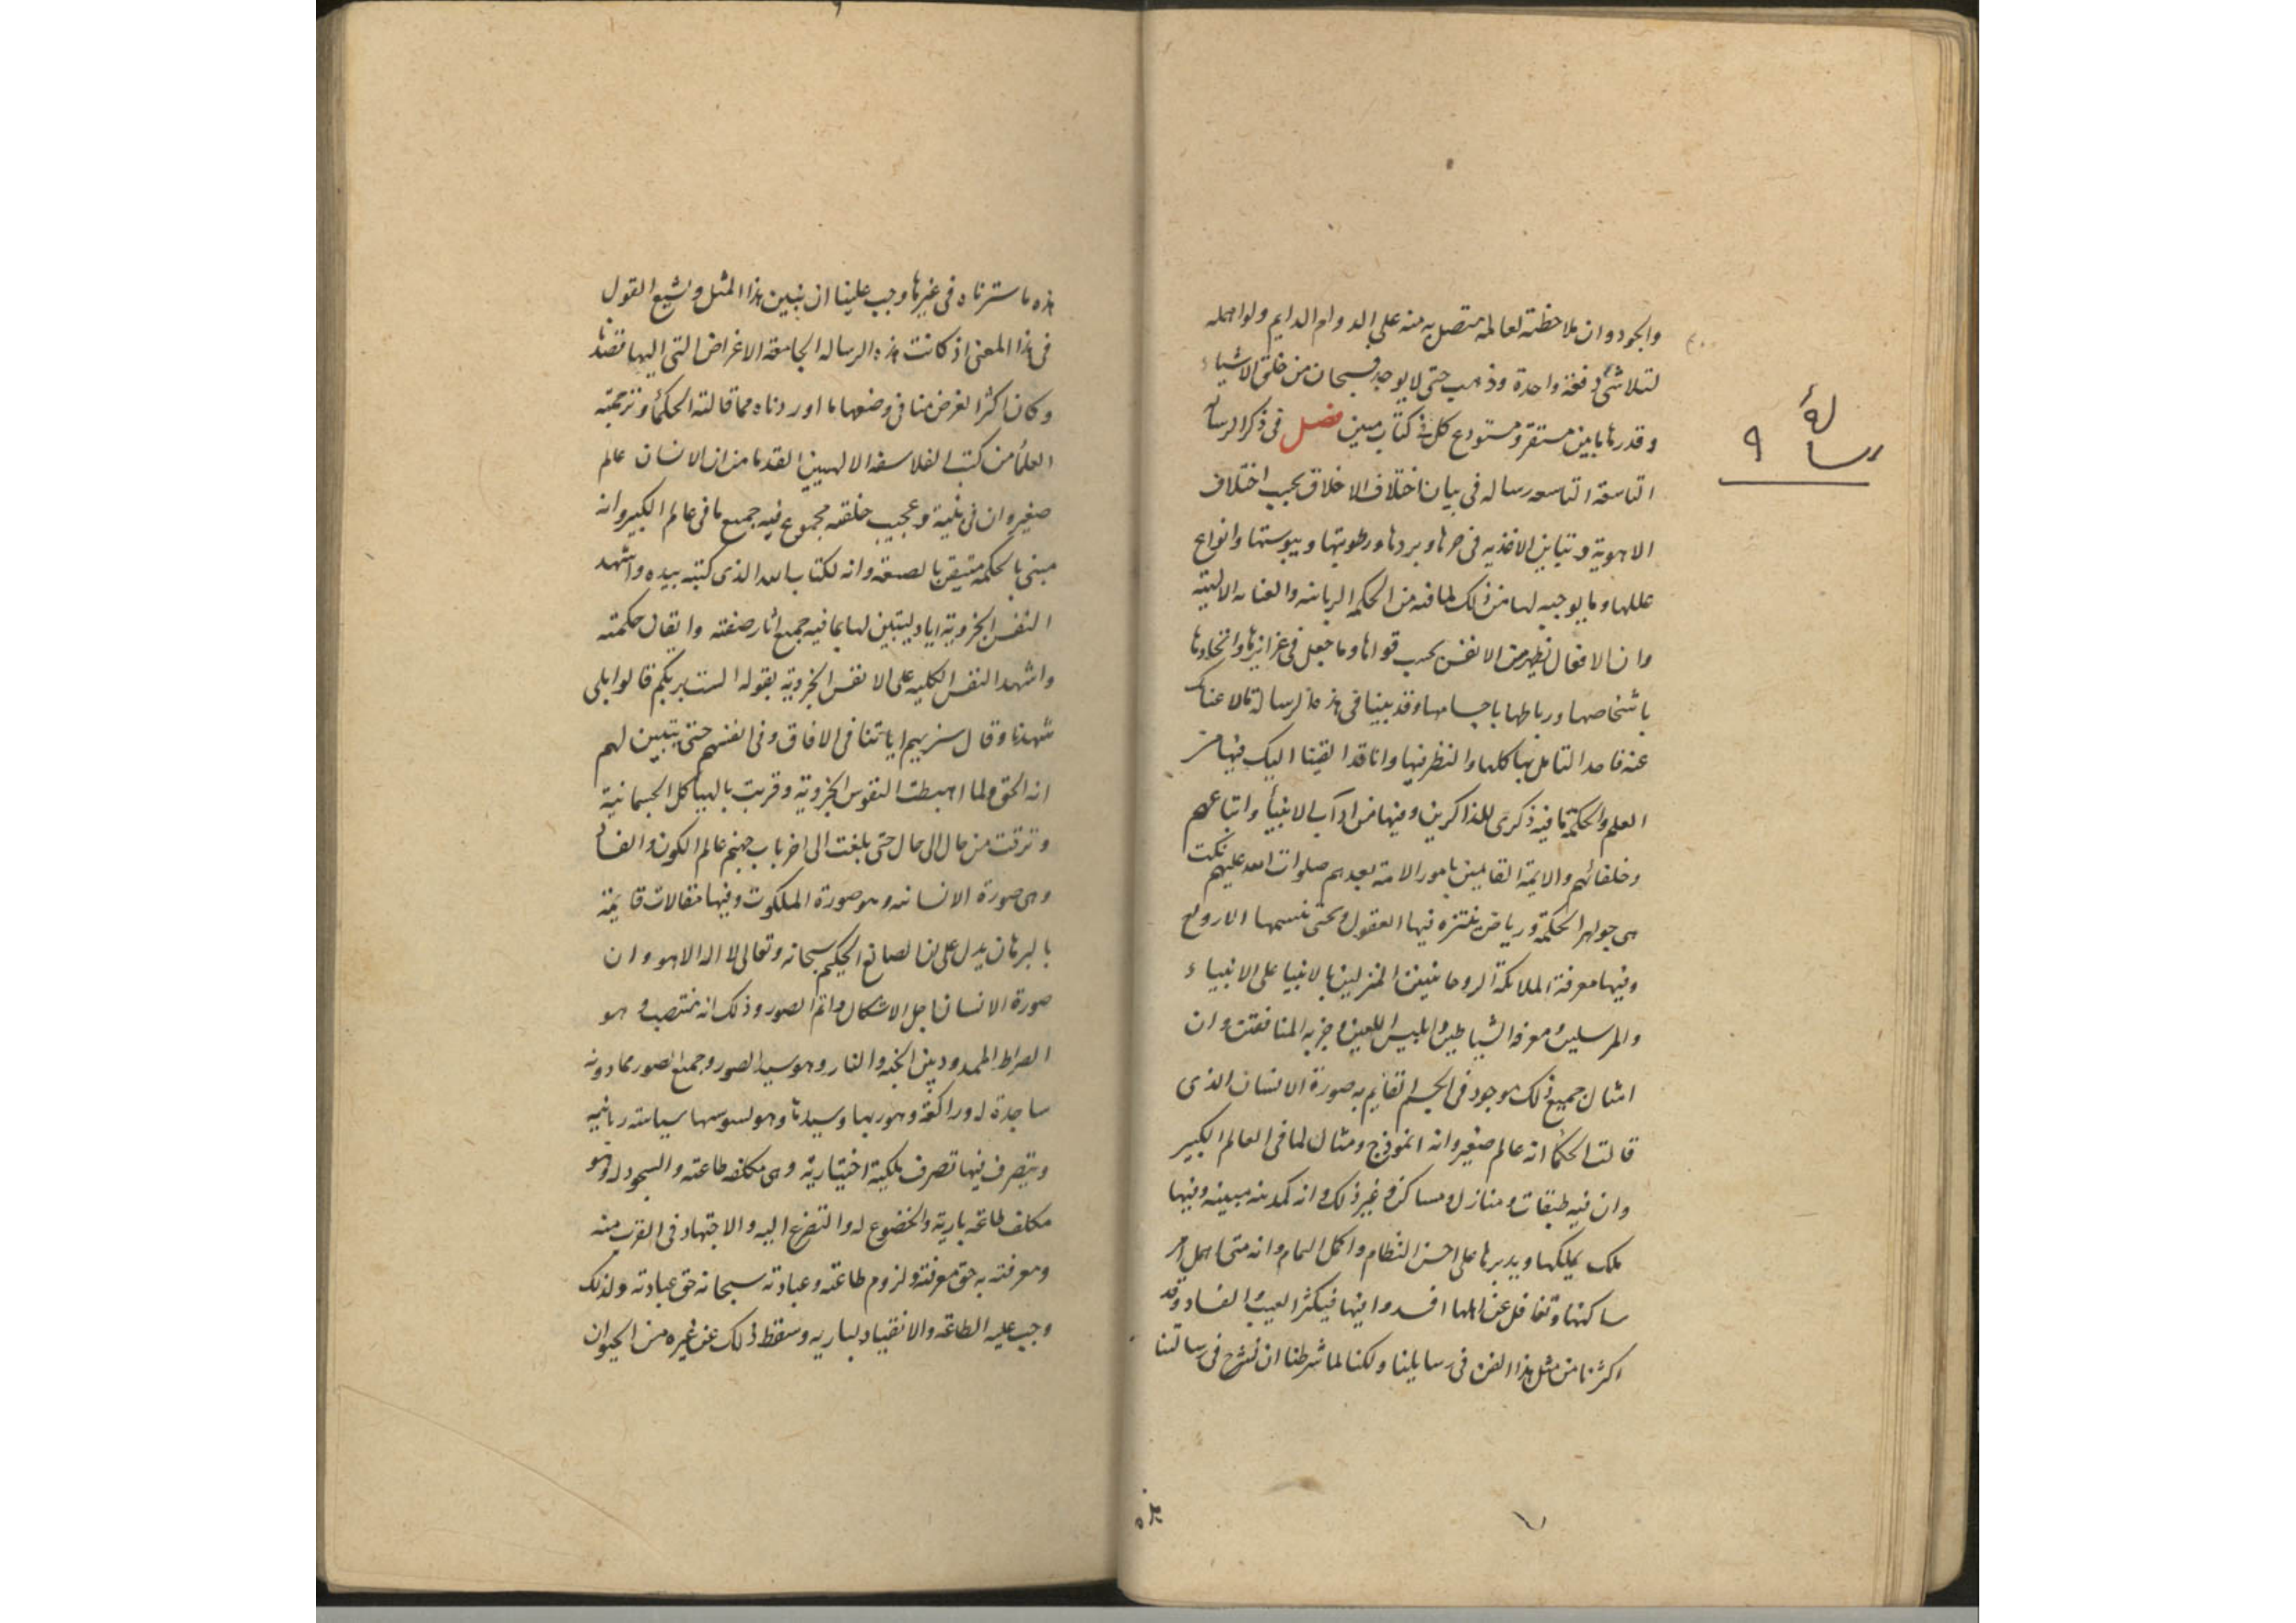 والجود وان ملاحظته لعالمه متصل به منه على الدوام الدايم ولو اهمله
لتلاشى دفعة واحدة وذهب حتى لا يوجد فسبحان من خلق الاشياء
وقدرها بين مستقر ومستودع كل فى كتاب مبين فصل فى ذكر الرسالة
التاسعة التاسعه رساله فى بيان اختلاف الاخلاق بحسب اختلاف
الاهوية وتباين الاغذيه فى حرها وبردها ورطوبتها ويبوستها وانواع
عللها وما يوجبه لها من ذلك لما فيه من الحكمه الربانيه والعنايه الالهية
وان الافعال تظهر من الانفس بحسب قواها وما جعل فى غرايزها واتحادها
باشخاصها ورباطها باجسامها وقد بينا فى هذه الرسالة ما لا غناك
عنه فاعد التامل بها كلها والنظر فيها وانا قد القينا اليك فيها من
العلم والحكمة ما فيه ذكرى للذاكرين وفيها من اداب الانبيأ واتباعهم
وخلفائهم والايمة القايمين بامور الامة بعدهم صلوات الله عليهم نكت
هى جواهر الحكمة ورياض يتنزه فيها العقول وتحى بنسيمها الارواح
وفيها معرفة الملائكة الروحانيين المنزلين بالانبيا على الانبياء
والمرسلين ومعرفه الشياطين وابليس اللعين وحزبه المنافقين وان
امثال جميع ذلك موجود فى الجسم القايم به صورة الانسان الذى
قالت الحكمأ انه عالم صغير وانه انموذج ومثال لما فى العالم الكبير
وان فيه طبقات ومنازل ومساكن وغير ذلك وانه كمدينه مبينه وفيها
ملك يملكها ويدبرها على احسن النظام واكمل التمام وانه متى اهمل امر
ساكنها وتغافل عن اهلها افسدوا فيها فيكثر العيب والفساد وقد
اكثرنا من مثل هذا الفن فى رسايلنا ولكنا لما شرطنا ان نشرح فى رسالتنا
هذه
رسالة ٩
هذه ما سترناه فى غيرها وجب علينا ان نبين هذا المثل ونشبع القول
فى هذا المعنى اذ كانت هذه الرساله الجامعة الاغراض التى اليها قصدنا
وكان اكثر الغرض منا فى وضعها ما اوردناه مما قالته الحكمأ وترجمته
العلمأ من كتب الفلاسفه الالهيين القدما من ان الانسان عالم
صغير وان فى بنية وعجيب خلقته مجموع فيه جميع ما فى عالم الكبير وانه
مبنى بالحكمه متيقن بالصنعة وانه لكتاب الله الذى كتبه بيده واشهد
النفس الجزوية اياه ليتبين لها بما فيه جميع اثار صنعته واتقان حكمته
واشهد النفس الكليه على الانفس الجزوية بقوله الست بربكم قالوا بلى
شهدنا وقال سنريهم اياتنا فى الافاق وفى انفسهم حتى يتبين لهم
انه الحق ولما اهبطت النفوس الجزوية وقربت بالهياكل الجسمانية
وترقت من حال الى حال حتى بلغت الى اخر باب جهنم عالم الكون والفسا
وهى صورة الانسانيه وهو صورة الملكوت وفيها مقالات قايمة
بالبرهان يدل على ان الصانع الحكيم سبحانه وتعالى لا اله الا هو وان
صورة الانسان اجل الاشكال واتم الصور وذلك انه منتصب وهو
الصراط الممدود بين الجنه والنار وهو سيد الصور وجميع الصور مما دونه
ساجدة له وراكعة وهو ربها وسيدها وهو يسوسها سياسته ربانيه
ويتصرف فيها تصرف ملكية اختيارية وهى مكلفه طاعته والسجود له وهو
مكلف طاعة باريه والخضوع له والتضرع اليه والاجتهاد فى القرب منه
ومعرفته به حق معرفته ولزوم طاعته وعبادته سبحانه حق عبادته ولذلك
وجب عليه الطاعة والانقياد لباريه وسقط ذلك عن غيره من الحيوان